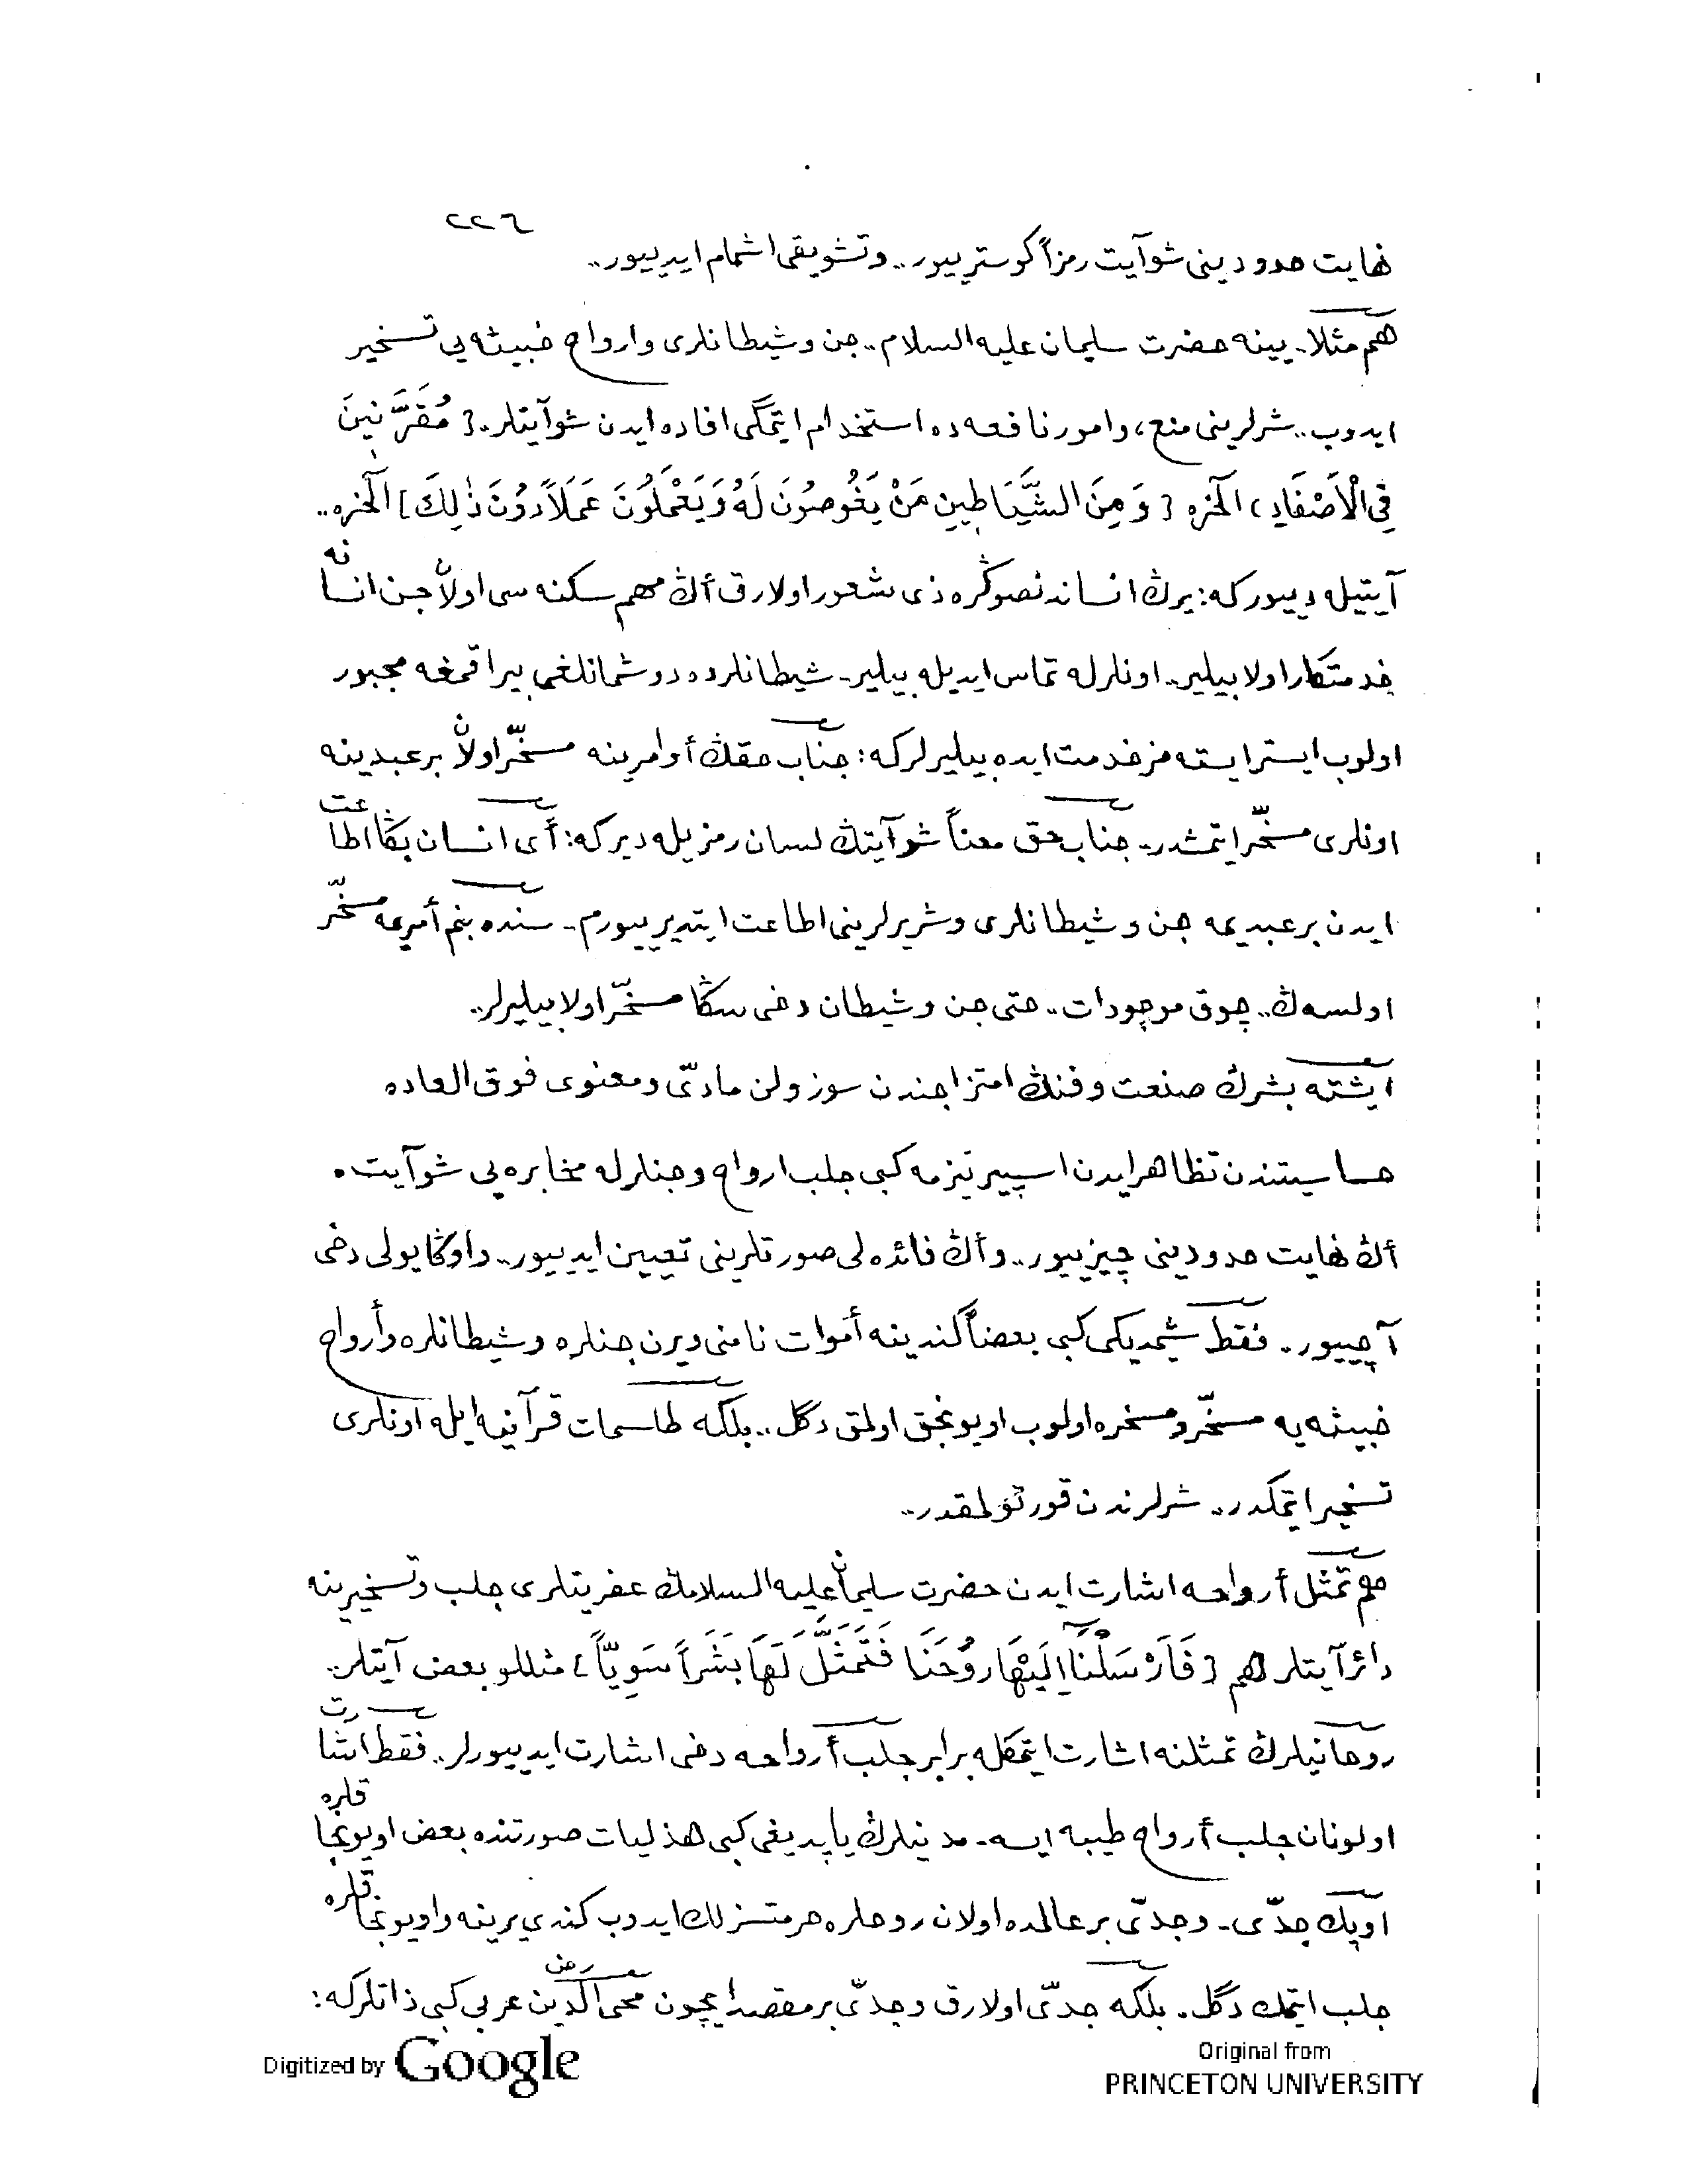 ٢٢٦
نهايت حدودينى شو آيت رمزاً گوستريیور.. و تشويقى اشمام ايدييور..
هم مثلا.. يينه حضرت سليمان عليه السلام.. جن و شيطانلرى و ارواح خبيثه يى تسخير
ايدوب.. شرلرينى منع، و امور نافعه ده استخدام ايتمگى افاده ايدن شو آيتلر.. [ مُقَرَّنِينَ
فِى الْاَصْفَادِ ، الخره [ وَ مِنَ الشَّيَاطِينِ مَنْ يَغُوصُونَ لَهُ وَ يَعْمَلُونَ عَمَلًا دُونَ ذٰلِكَ ] الخره..
آيتيله دييور كه: يرڭ انساندنصوڭره ذى شعور اولارق أڭ مهم سكنه سى اولان جن انسانه
خدمتكار اولابيلير.. اونلرله تماس ايديله بيلير.. شيطانلرده دوشمانلغى بيراقمغه مجبور
اولوب ايستر ايسته مز خدمت ايده بيليرلر كه: جناب حقڭ أوامرينه مسخّر اولان بر عبدينه
اونلرى مسخّر ايتمشدر.. جناب حق معناً شو آيتڭ لسان رمزيله دير كه: أى انسان بڭا اطاعت
ايدن بر عبديمه جن و شيطانلرى و شريرلرينى اطاعت ايتديرييورم.. سنده بنم أمريمه مسخّر
اولسه ڭ.. چوق موجودات.. حتى جن و شيطان دخى سڭا مسخّر اولابيليرلر..
ايشته بشرڭ صنعت و فنڭ امتزاجندن سوزولن مادىّ و معنوى فوق العاده
حساسيتندن تظاهر ايدن اسپيرتيزمه كبى جلب ارواح و جنلرله مخابره يى شو آيت.
أڭ نهايت حدودينى چيزييور.. و أڭ فائده لى صورتلرينى تعيين ايدييور.. و اوڭا يولى دخى
آچييور.. فقط شيمديكى كبى بعضاً كندينه أموات نامنى ويرن جنلره و شيطانلره و أرواح
خبيثه يه مسخّر و مسخره اولوب اويونجق اولمق دگل.. بلكه طلسمات قرآنيه ايله اونلرى
تسخير ايتمكدر.. شرلرندن قورتولمقدر..
هم تمثل أرواحه اشارت ايدن حضرت سليمان عليه السلامڭ عفريتلرى جلب و تسخيرينه
دائر آيتلر هم [ فَاَرْسَلْنَا اِلَيْهَا رُوحَنَا فَتَمَثَّلَ لَهَا بَشَراً سَوِيّاً ] مثللو بعض آيتلر..
روحانيلرڭ تمثلنه اشارت ايتمكله برابر جلب أرواحه دخى اشارت ايدييورلر.. فقط اشارت
اولونان جلب أرواح طيبه ايسه.. مدنيلرڭ ياپديغى كبى هذليات صورتنده بعض اويونجاقلره
او پك جدّى.. و جدّى بر عالمده اولان روحلره حرمتسزلك ايدوب كندى يرينه و اويونجاقلره
جلب ايتمك دگل.. بلكه جدّى اولارق و جدّى بر مقصد ايچون محى الدين عربى رض كبى ذاتلر كه:
Digitized by Google
Original from
PRINCETON UNIVERSITY